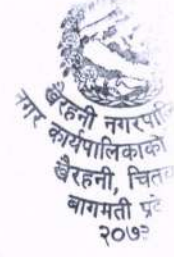 खैरहनी नगरपा
नगर कार्यपालिकाको
खैरहनी, चितव
बागमती प्र
२०७३